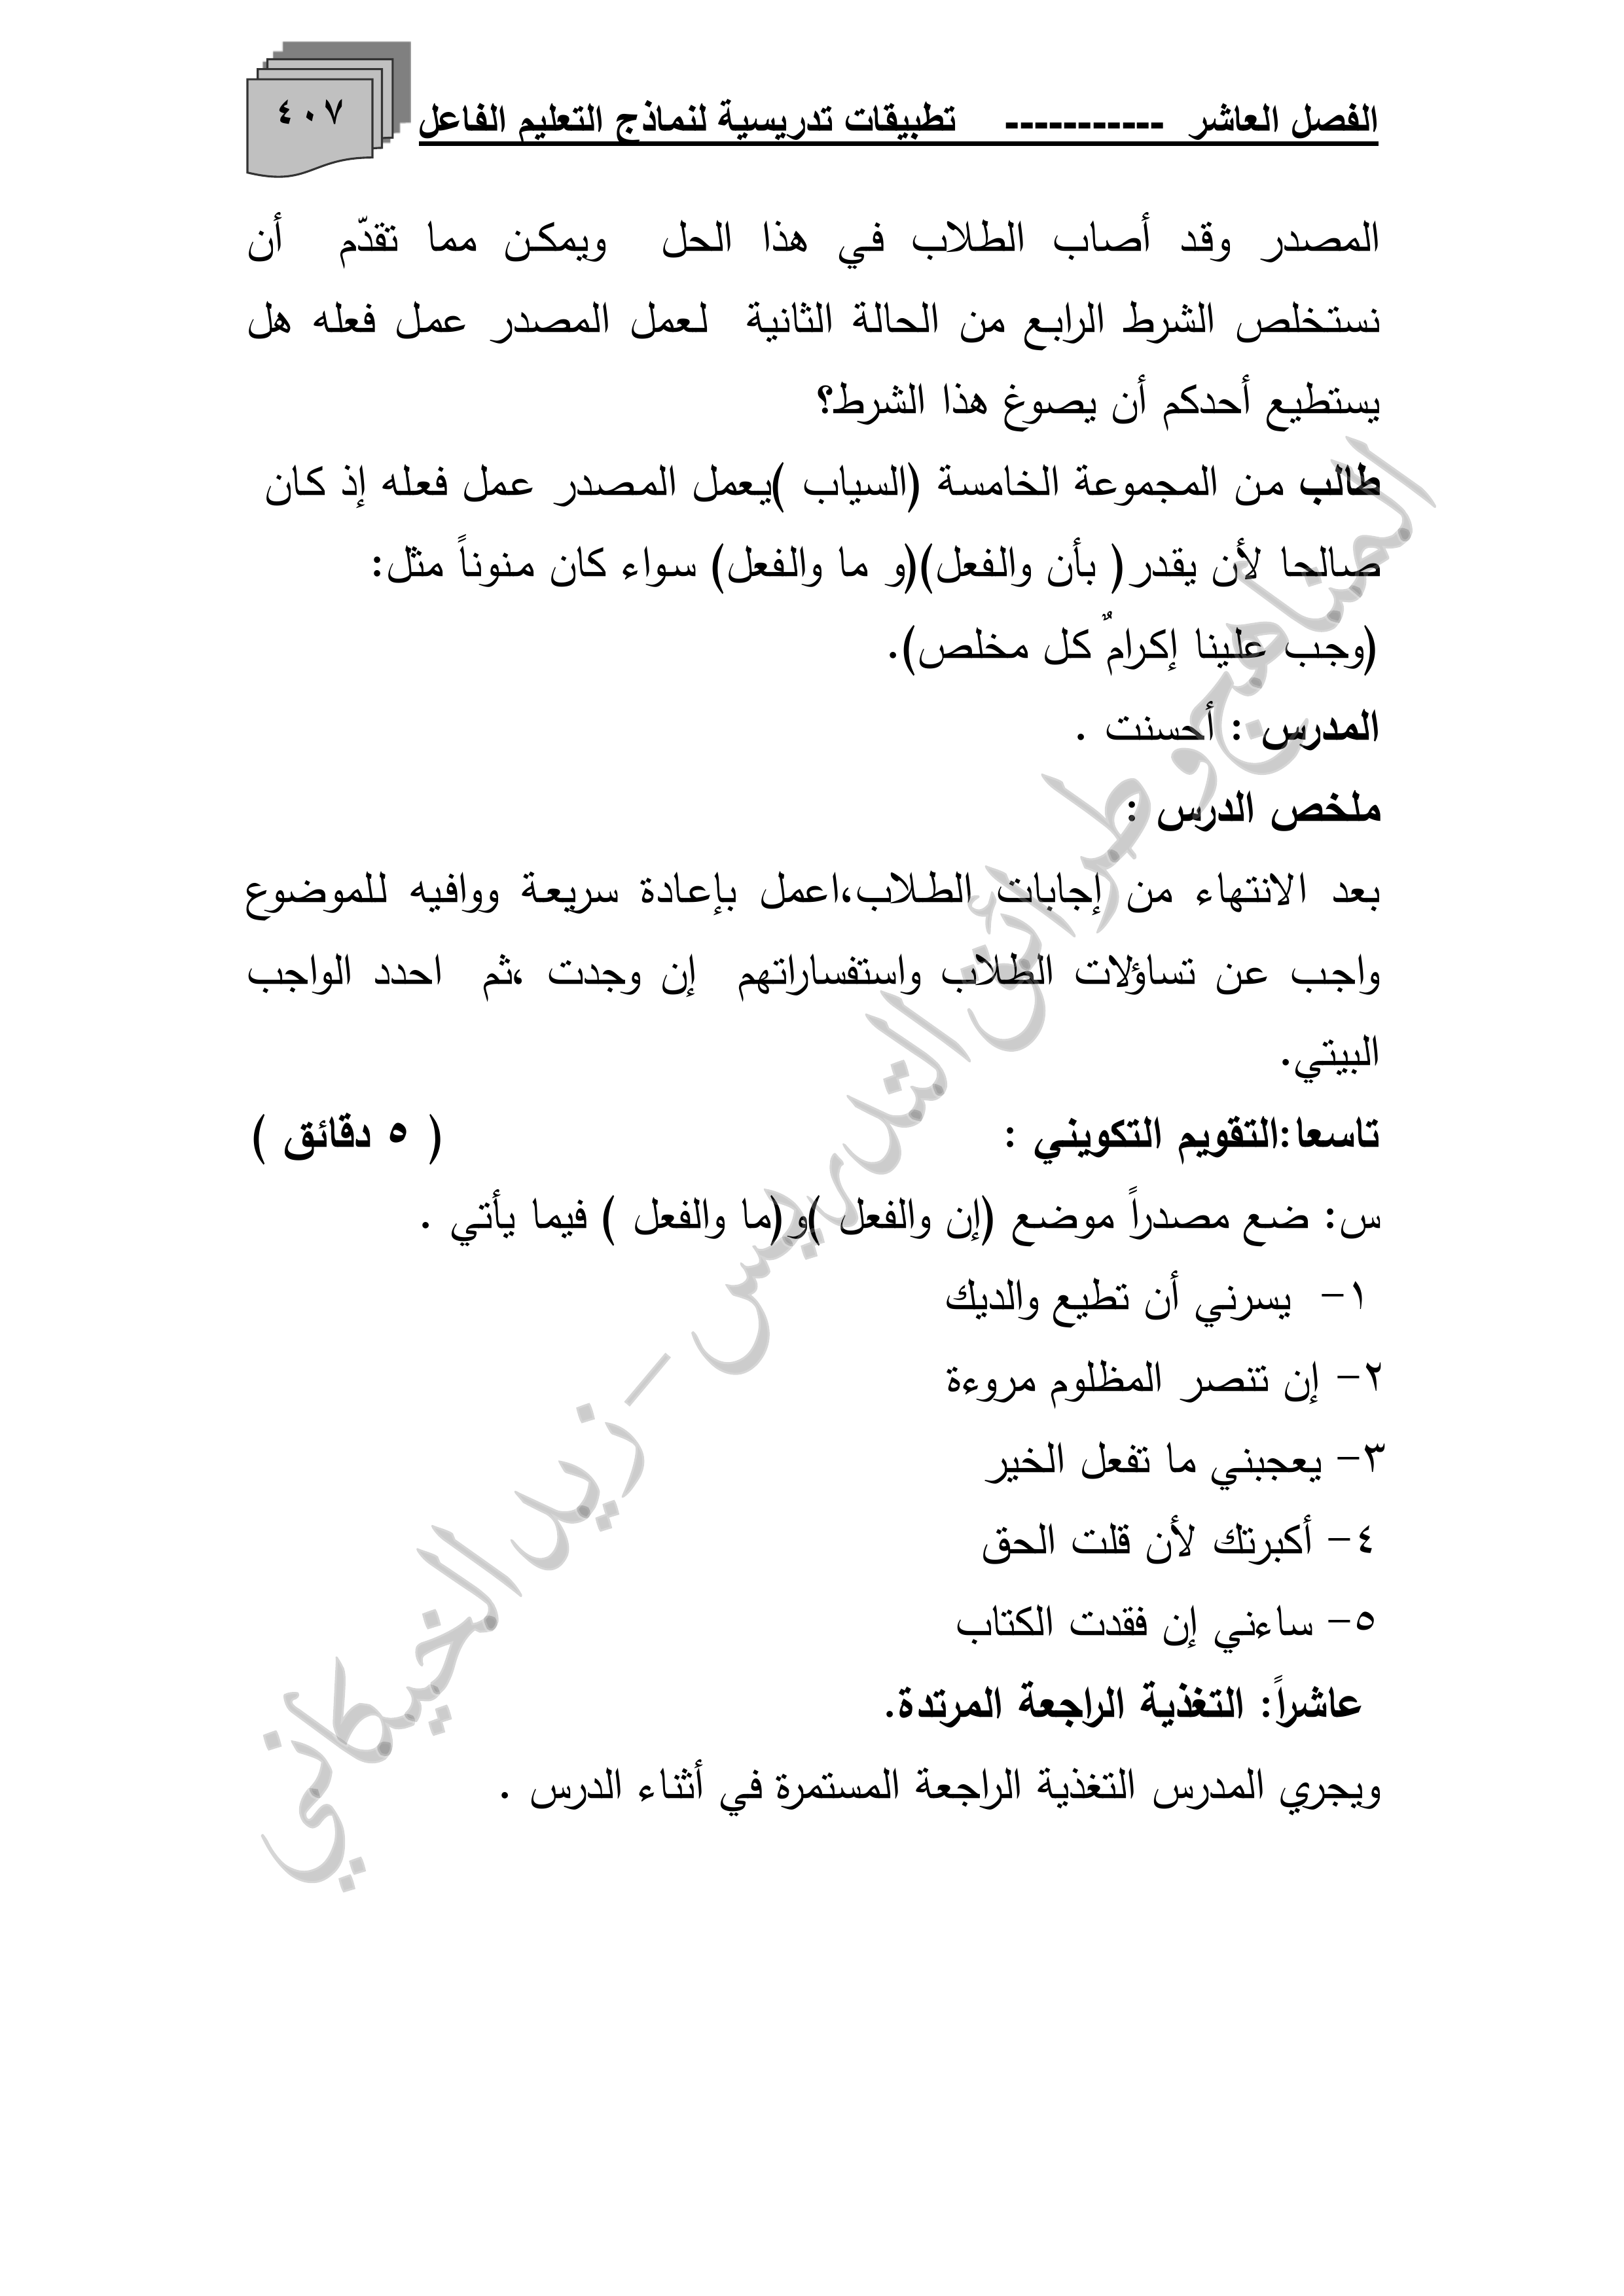 الفصل العاشر ----------- تطبيقات تدريسية لنماذج التعليم الفاعل ٤٠٧
المصدر وقد أصاب الطلاب في هذا الحل ويمكن مما تقدّم أن
نستخلص الشرط الرابع من الحالة الثانية لعمل المصدر عمل فعله هل
يستطيع أحدكم أن يصوغ هذا الشرط؟
طالب من المجموعة الخامسة (السياب )يعمل المصدر عمل فعله إذ كان
صالحا لأن يقدر( بأن والفعل)(و ما والفعل) سواء كان منوناً مثل:
(وجب علينا إكرامٌ كل مخلص).
المدرس : أحسنت .
ملخص الدرس :
بعد الانتهاء من إجابات الطلاب،اعمل بإعادة سريعة ووافيه للموضوع
واجب عن تساؤلات الطلاب واستفساراتهم إن وجدت ،ثم احدد الواجب
البيتي.
تاسعا:التقويم التكويني : ( ٥ دقائق )
س: ضع مصدراً موضع (إن والفعل )و(ما والفعل ) فيما يأتي .
١- يسرني أن تطيع والديك
٢- إن تنصر المظلوم مروءة
٣- يعجبني ما تفعل الخير
٤- أكبرتك لأن قلت الحق
٥- ساءني إن فقدت الكتاب
عاشراً: التغذية الراجعة المرتدة.
ويجري المدرس التغذية الراجعة المستمرة في أثناء الدرس .
المناهج وطرائق التدريس - زيد الخيكاني